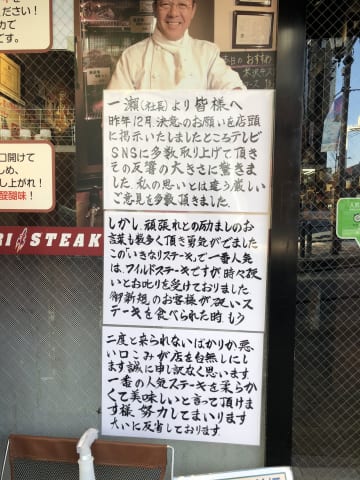 ください！
カで
です。
一瀬(社長)より皆様へ
昨年12月、決意のお願いを店頭
に掲示いたしましたところテレビ
SNSに多数取り上げて頂き
その反響の大きさに驚きま
した。私の思いとは違う厳しい
ご意見を多数、頂きました。
しかし、頑張れとの励ましのお
言葉も数多く頂き勇気がでました
この「いきなりステーキ」で一番人気
は、ワイルドステーキですが時々硬い
とお叱りを受けておりました
御新規のお客様が硬いス
テーキを食べられた時もう
二度と来られないばかりか悪
い口こみが店を台無しにし
ます誠に申し訳なく思います
一番の人気ステーキを柔らか
くて美味しいと言って頂けま
す様、努力してまいります
大いに反省しております。
口開けて
しめ、
し上がれ！
醍醐味！
RI STEAK
本日のおすすめ